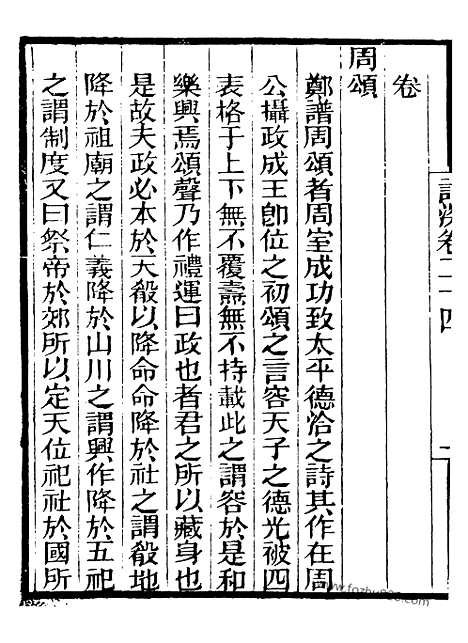 卷
周頌
鄭譜周頌者周室成功致太平德洽之詩其作在周
公攝政成王卽位之初頌之言容天子之德光被四
表格于上下無不覆燾無不持載此之謂容於是和
樂興焉頌聲乃作禮運曰政也者君之所以藏身也
是故夫政必本於天殽以降命命降於社之謂殽地
降於祖廟之謂仁義降於山川之謂興作降於五祀
之謂制度又曰祭帝於郊所以定天位祀社於國所